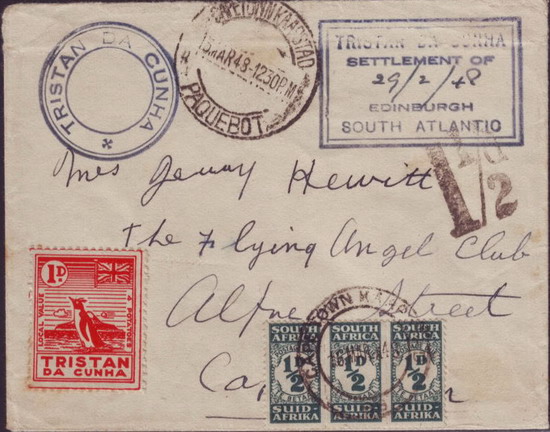 TRISTAN DA CUNHA
CAPETOWN KAAPSTAD
PAQUEBOT
TRISTAN DA CUNHA
SETTLEMENT OF
29/2/48
EDINBURGH
SOUTH ATLANTIC
1/2
Mrs Jenny Hewitt
The Flying Angel Club
Alfred Street
1D.
LOCAL VALUE
4 POTATOES
TRISTAN
DA CUNHA
SOUTH AFRICA
½D
SUID-AFRIKA
SOUTH AFRICA
½D
SUID-AFRIKA
SOUTH AFRICA
½D
SUID-AFRIKA